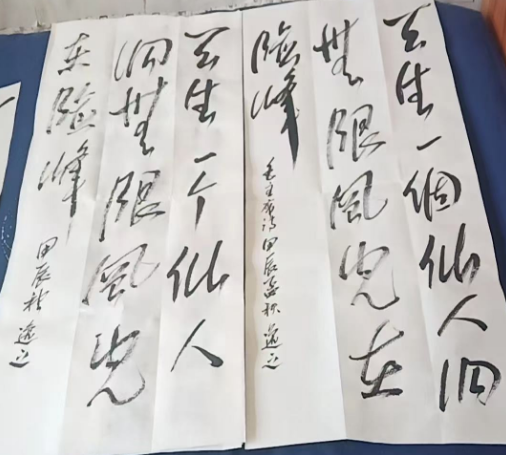 天生一個仙人洞
無限風光在
險峰
毛主席詩 甲辰孟秋
天生一个仙人
洞無限風光
在險峰
甲辰秋